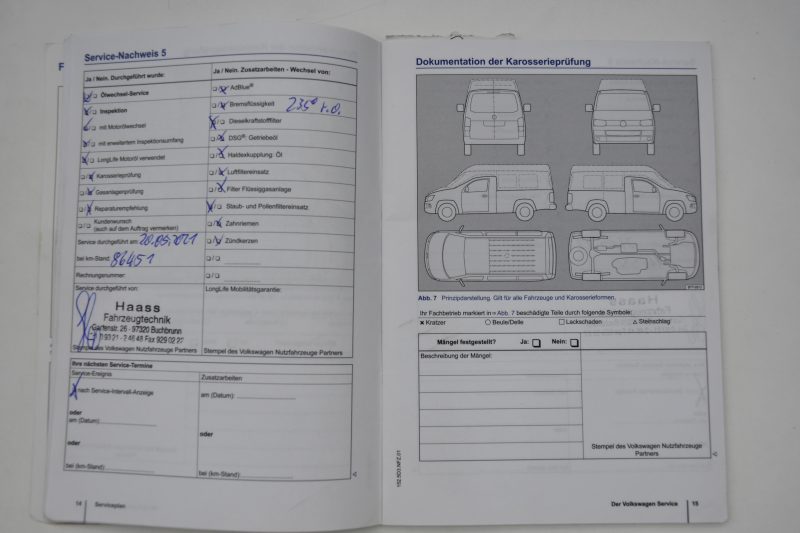 Service-Nachweis 5
Ja / Nein. Durchgeführt wurde:
Ölwechsel-Service
Inspektion
mit Motorölwechsel
mit erweitertem Inspektionsumfang
LongLife Motoröl verwendet
Karosserieprüfung
Gasanlagenprüfung
Reparaturempfehlung
Kundenwunsch
(auch auf dem Auftrag vermerken)
Service durchgeführt am: 20.05.2021
bei km-Stand: 86451
Rechnungsnummer:
Service durchgeführt von:
Haass
Fahrzeugtechnik
Gartenstr. 26 - 97320 Buchbrunn
Stempel des Volkswagen Nutzfahrzeuge Partners
Ja / Nein. Zusatzarbeiten - Wechsel von:
AdBlue®
Bremsflüssigkeit 235° i.O.
Dieselkraftstofffilter
DSG®: Getriebeöl
Haldexkupplung: Öl
Luftfiltereinsatz
Filter Flüssiggasanlage
Staub- und Pollenfiltereinsatz
Zahnriemen
Zündkerzen
LongLife Mobilitätsgarantie:
Stempel des Volkswagen Nutzfahrzeuge Partners
Ihre nächsten Service-Termine
Service-Ereignis
nach Service-Intervall-Anzeige
oder
am (Datum):
oder
bei (km-Stand)
Zusatzarbeiten
am (Datum):
oder
bei (km-Stand):
14 Serviceplan
Dokumentation der Karosserieprüfung
Abb. 7 Prinzipdarstellung. Gilt für alle Fahrzeuge und Karosserieformen.
Ihr Fachbetrieb markiert in ⇒ Abb. 7 beschädigte Teile durch folgende Symbole:
x Kratzer ○ Beule/Delle □ Lackschaden △ Steinschlag
Mängel festgestellt? Ja: Nein:
Beschreibung der Mängel:
Stempel des Volkswagen Nutzfahrzeuge
Partners
Der Volkswagen Service 15